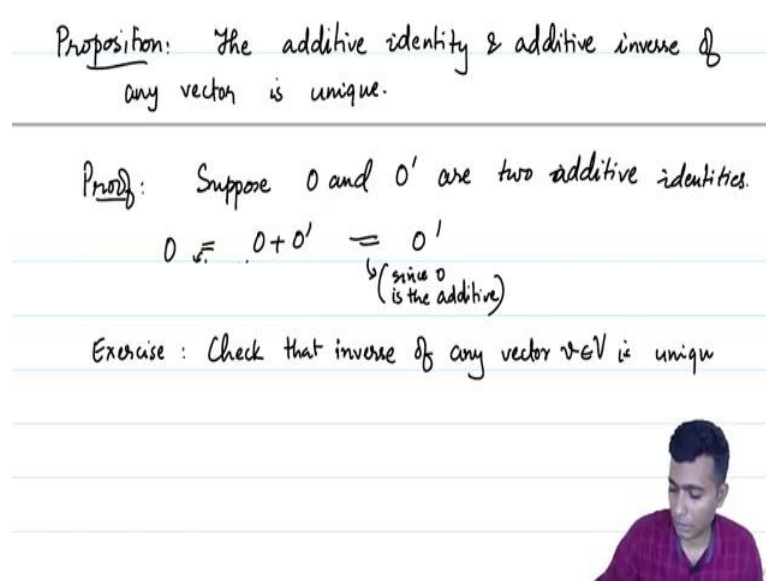 Proposition: The additive identity & additive inverse of
any vector is unique.
Proof: Suppose 0 and 0' are two additive identities.
0 = 0+0' = 0'
(since 0
is the additive)
Exercise: Check that inverse of any vector v∈V is uniqu